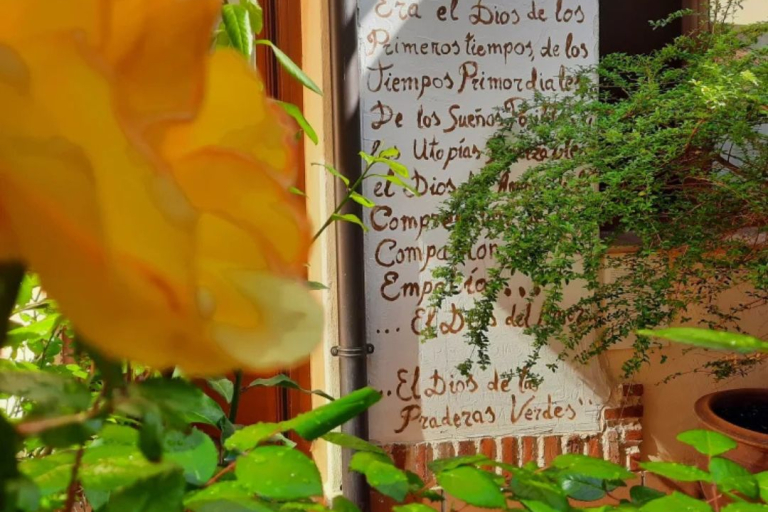 Era el Dios de los
Primeros tiempos, de los
Tiempos Primordiales
De los Sueños
las Utopías
el Dios
Compren
Compasión
Empatía ...
... El Dios del Amor
...El Dios de las
Praderas Verdes"